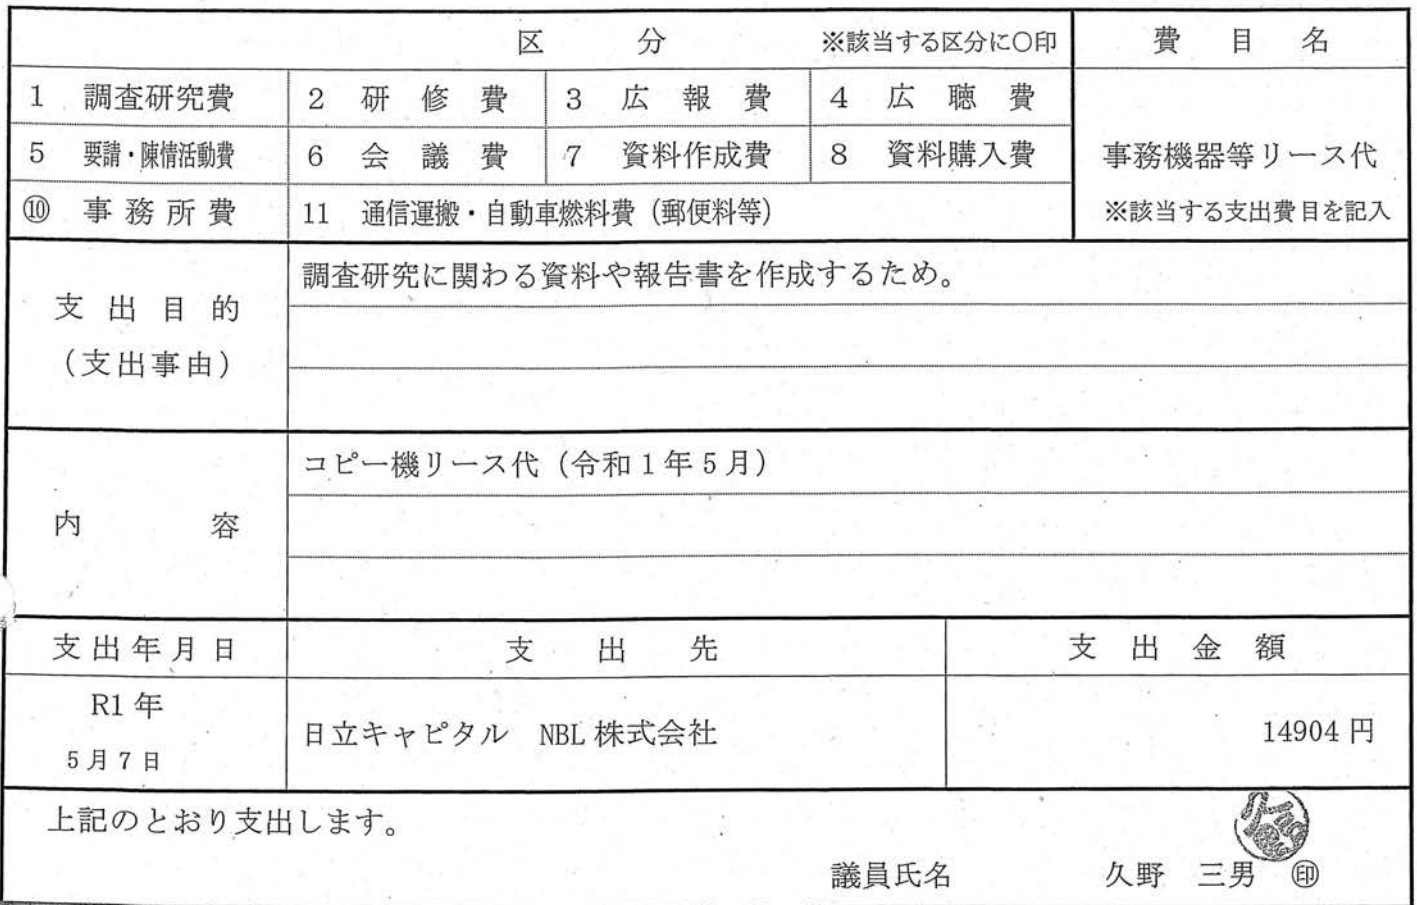 区 分 ※該当する区分に○印 費 目 名
1 調査研究費 2 研 修 費 3 広 報 費 4 広 聴 費
5 要請・陳情活動費 6 会 議 費 7 資料作成費 8 資料購入費 事務機器等リース代
⑩ 事務所費 11 通信運搬・自動車燃料費（郵便料等） ※該当する支出費目を記入
支出目的
（支出事由）
調査研究に関わる資料や報告書を作成するため。
内 容
コピー機リース代（令和１年５月）
支出年月日 支 出 先 支 出 金 額
R1 年
5月7日
日立キャピタル NBL 株式会社
14904 円
上記のとおり支出します。
議員氏名 久野 三男 ㊞